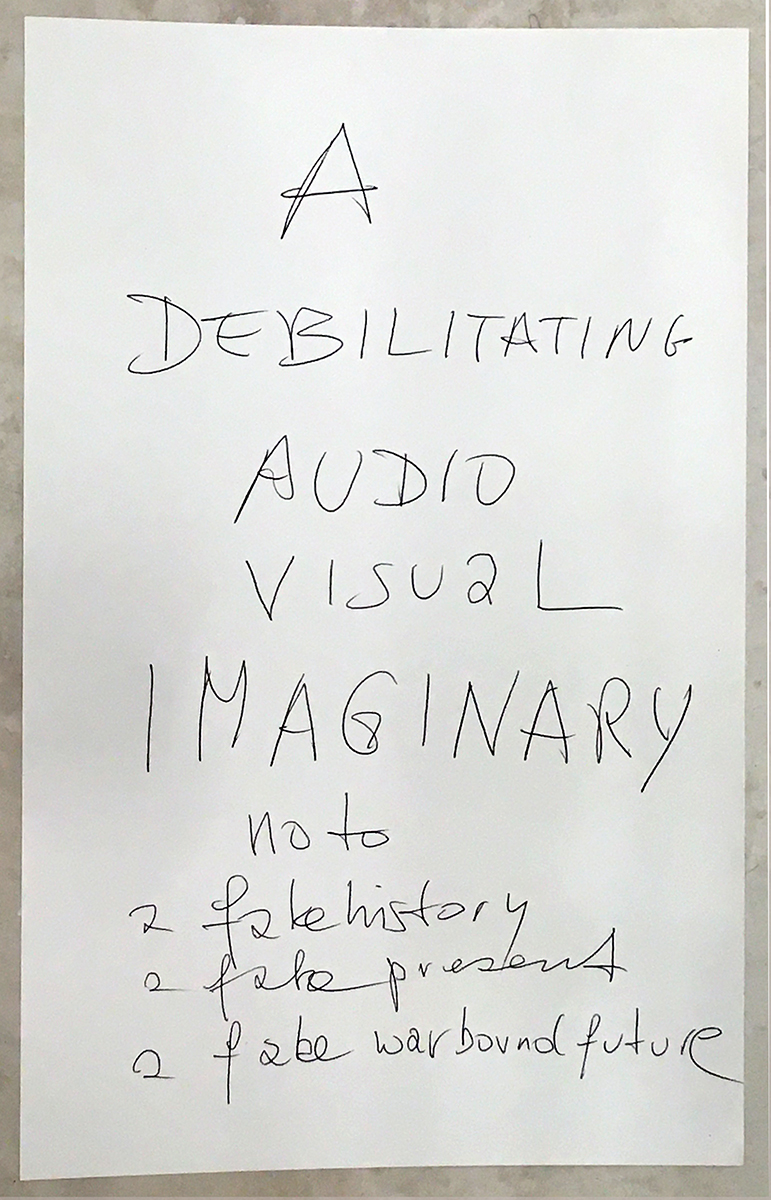 A
DEBILITATING
AUDIO
VISUaL
IMAGINARY
no to
a fake history
a fake present
a fake warbound future